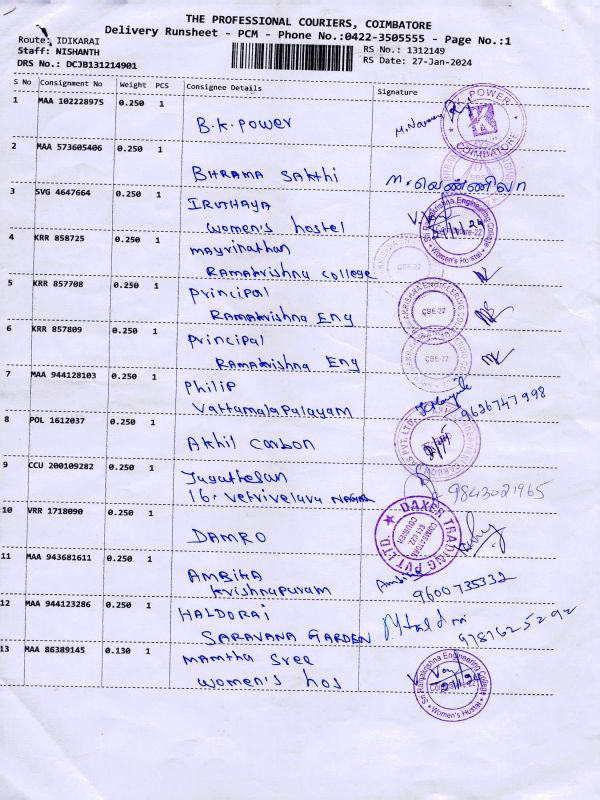 THE PROFESSIONAL COURIERS, COIMBATORE
Delivery Runsheet - PCM - Phone No.:0422-3505555 - Page No.:1
Route: IDIKARAI
Staff: NISHANTH
DRS No.: DCJB131214901
RS No.: 1312149
RS Date: 27-Jan-2024
S No Consignment No Weight PCS Consignee Details Signature
1 MAA 102228975 0.250 1 B.K. POWER
POWER
COIMBATORE
2 MAA 573605406 0.250 1 BHRAMA SAKTHI
3 SVG 4647664 0.250 1 IRUTHAYA
women's hostel
Sri Ramakrishna Engineering College
Women's Hostel
4 KRR 858725 0.250 1 mayrinathan
RAMAKRISHNA COLLEGE
CBE-22
5 KRR 857708 0.250 1 principal
RAMAKRISHNA Eng
CBE-22
6 KRR 857809 0.250 1 principal
RAMAKRISHNA Eng
CBE-22
7 MAA 944128103 0.250 1 Philip
Vattamalapalayam
9626747998
8 POL 1612037 0.250 1 Akhil carbon
9 CCU 200109282 0.250 1 Jugathesan
16, vetrivelavu NAGAR
9843021965
10 VRR 1718090 0.250 1 DAMRO
DAXER TRADING PVT LTD.
COIMBATORE
COURIER
11 MAA 943681611 0.250 1 AMBIKA
krishnapuram
Ambika
9600735332
12 MAA 944123286 0.250 1 HALDORAI
SARAVANA GARDEN
9787625292
13 MAA 86389145 0.130 1 mamtha sree
women's hos
Sri Ramakrishna Engineering College
Women's Hostel